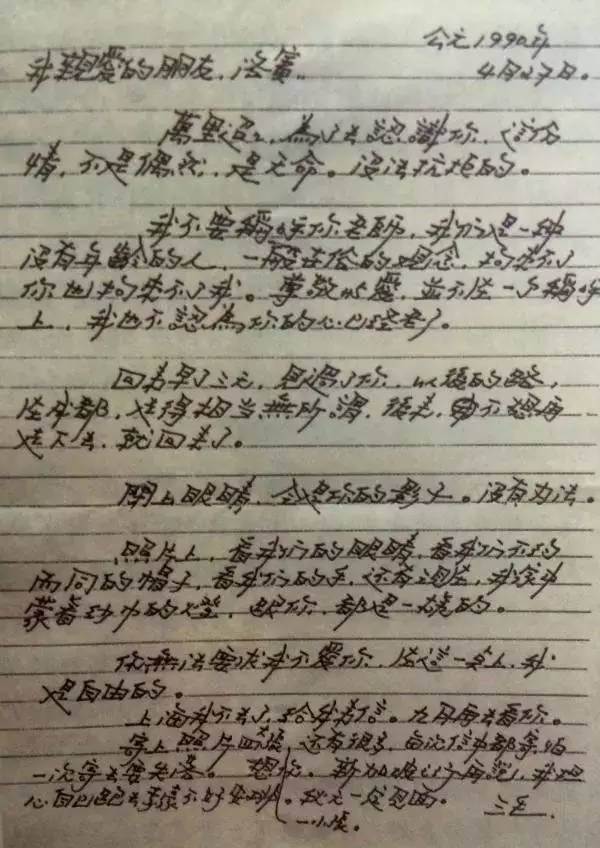 公元1990年
我親愛的朋友,洛賓:
4月27日。
萬里迢迢,為了去認識你,這份
情,不是偶然,是天命。沒法抗拒的。
我不要稱呼你老師,我们是一种
沒有年齡的人,一般世俗的观念,拘束不了
你也拘束不了我。尊敬與愛,並不在一个稱呼
上,我也不認為你的心已經老了。
回來早了三天,見過了你,以後的路,
在成都,走得相当無所謂,後來,不想再
走下去,就回來了。
閉上眼睛,全是你的影子。沒有办法。
照片上,看我们的眼睛,看我们不约
而同的帽子,看我们的手,还有現在,我家中
蒙着纱巾的灯,跟你,都是一樣的。
你無法要求我不愛你,在這一点上,我
是自由的。
上海我不去了,给我來信。九月再去看你。
寄上照片四大張,还有很多,每次信中都寄,怕
一次寄去要失落。想你。新加坡之行再說,我担
心自己跑去手续不好安排。秋天一定見面。三毛.
一小張。